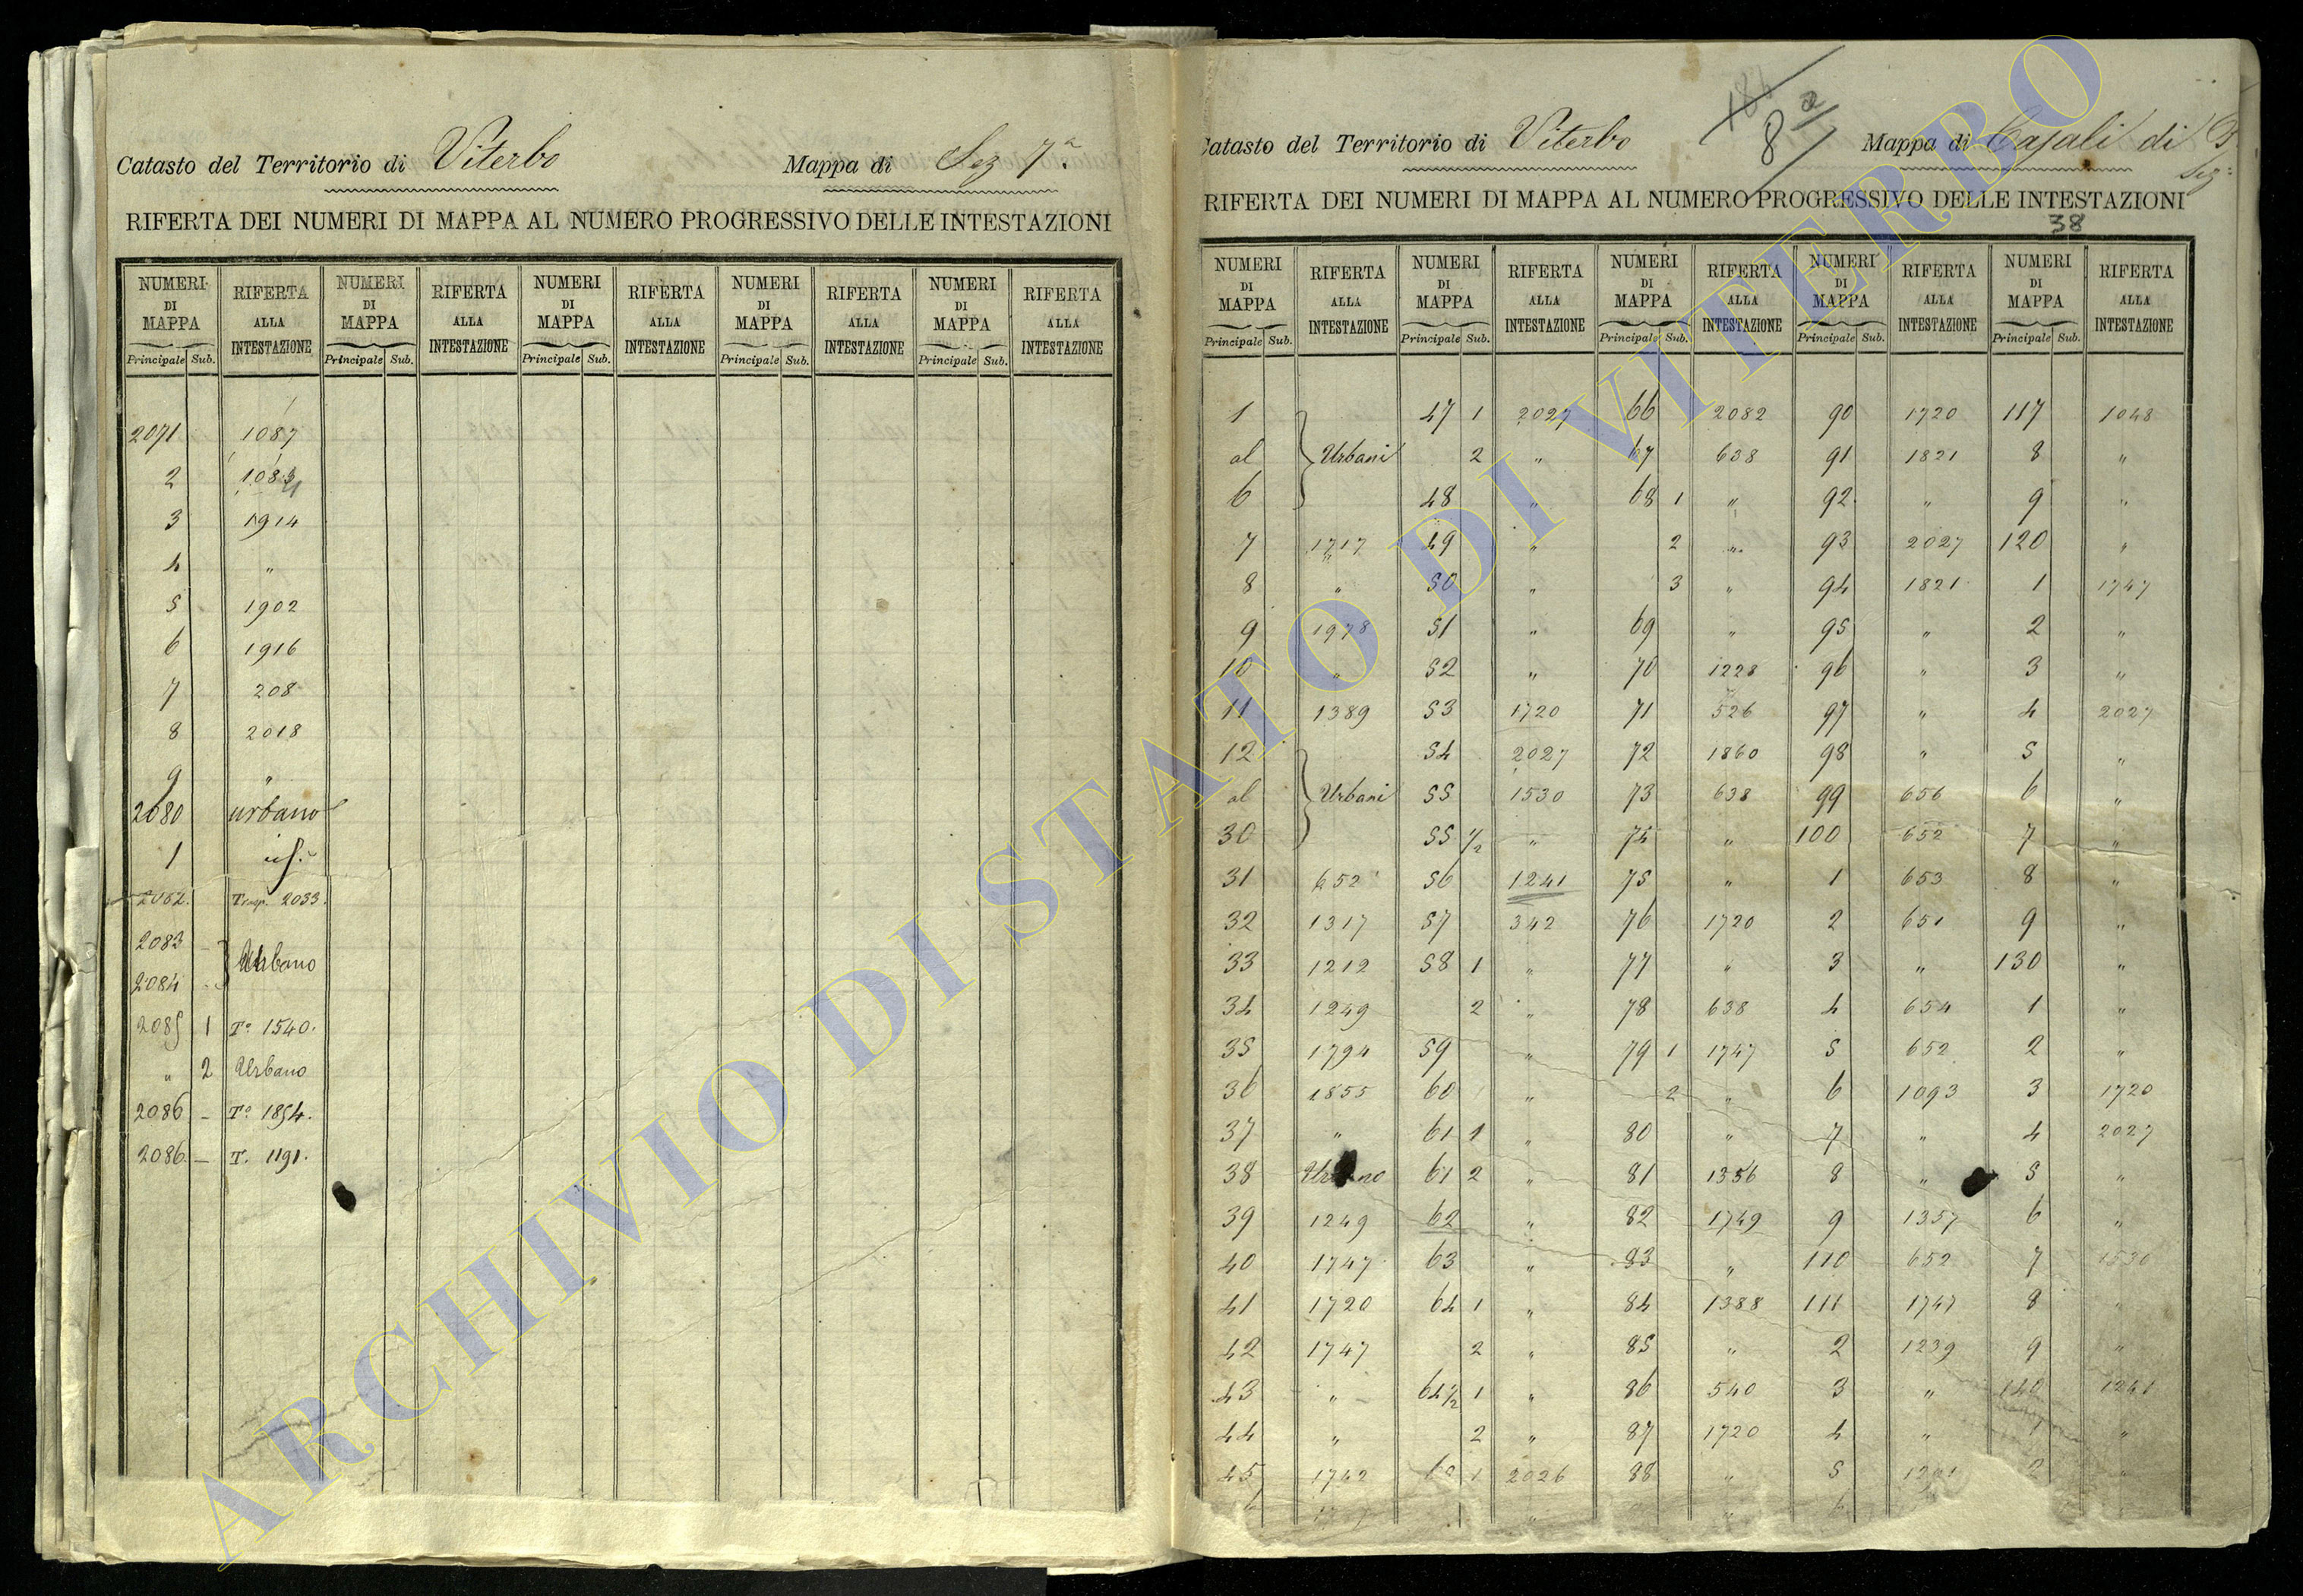 Catasto del Territorio di Viterbo Mappa di Sez 7ª
RIFERTA DEI NUMERI DI MAPPA AL NUMERO PROGRESSIVO DELLE INTESTAZIONI
NUMERI DI MAPPA RIFERTA ALLA INTESTAZIONE NUMERI DI MAPPA RIFERTA ALLA INTESTAZIONE NUMERI DI MAPPA RIFERTA ALLA INTESTAZIONE NUMERI DI MAPPA RIFERTA ALLA INTESTAZIONE NUMERI DI MAPPA RIFERTA ALLA INTESTAZIONE
Principale Sub. Principale Sub. Principale Sub. Principale Sub. Principale Sub.
2071 1087
2
3 1914
4 "
5 1902
6 1916
7 208
8 2018
9 "
2080 urbano
1 id.
2082. Trasp. 2033.
2083 Urbano
2084
2085 1 Tº 1540.
" 2 Urbano
2086 – Tº 1854.
2086. – T. 1191.
8ª
Catasto del Territorio di Viterbo Mappa di Casali di B
Sez:
RIFERTA DEI NUMERI DI MAPPA AL NUMERO PROGRESSIVO DELLE INTESTAZIONI
38
NUMERI DI MAPPA RIFERTA ALLA INTESTAZIONE NUMERI DI MAPPA RIFERTA ALLA INTESTAZIONE NUMERI DI MAPPA RIFERTA ALLA INTESTAZIONE NUMERI DI MAPPA RIFERTA ALLA INTESTAZIONE NUMERI DI MAPPA RIFERTA ALLA INTESTAZIONE
Principale Sub. Principale Sub. Principale Sub. Principale Sub. Principale Sub.
1 47 1 2027 66 2082 90 1720 117 1048
al Urbani 2 " 67 638 91 1821 8 "
6 48 " 68 1 " 92 " 9 "
7 1717 49 " 2 " 93 2027 120 "
8 " 50 " 3 " 94 1821 1 1747
9 1978 51 " 69 " 95 " 2 "
10 " 52 " 70 1228 96 " 3 "
11 1389 53 1720 71 526 97 " 4 2027
12 54 2027 72 1860 98 " 5 "
al Urbani 55 1530 73 638 99 656 6 "
30 55 1/2 " 74 " 100 652 7 "
31 652 56 1241 75 " 1 653 8 "
32 1317 57 342 76 1720 2 651 9 "
33 1212 58 1 " 77 " 3 " 130 "
34 1249 2 " 78 638 4 654 1 "
35 1794 59 " 79 1 1747 5 652 2 "
36 1855 60 " 2 " 6 1093 3 1720
37 " 61 1 " 80 " 7 " 4 2027
38 Urbano 61 2 " 81 1356 8 " 5 "
39 1249 62 " 82 1749 9 1357 6 "
40 1747 63 " 83 " 110 652 7 1530
41 1720 64 1 " 84 1388 111 1747 8 "
42 1747 2 " 85 " 2 1239 9 "
43 " 64 1/2 1 " 86 540 3 " 140 1241
44 " 2 " 87 1720 4 " 1 "
45 1742 1 2026 88 " 5 2 "
ARCHIVIO DI STATO DI VITERBO